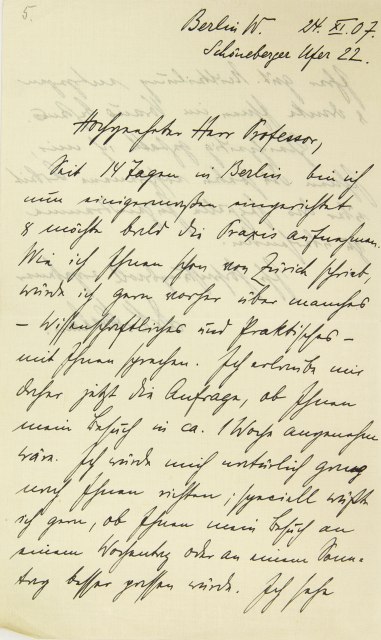 5.
Berlin W. 24. XI. 07.
Schöneberger Ufer 22.
Hochgeehrter Herr Professor,
Seit 14 Tagen in Berlin bin ich
nun einigermaßen eingerichtet
& möchte bald die Praxis aufnehmen.
Wie ich Ihnen schon von Zürich schrieb,
würde ich gern vorher über manches
– Wissenschaftliches und Praktisches –
mit Ihnen sprechen. Ich erlaube mir
daher jetzt die Anfrage, ob Ihnen
mein Besuch in ca. 1 Woche angenehm
wäre. Ich würde mich natürlich ganz
nach Ihnen richten; speciell wüßte
ich gern, ob Ihnen mein Besuch an
einem Wochentag oder an einem Sonn-
tag besser passen würde. Ich sehe